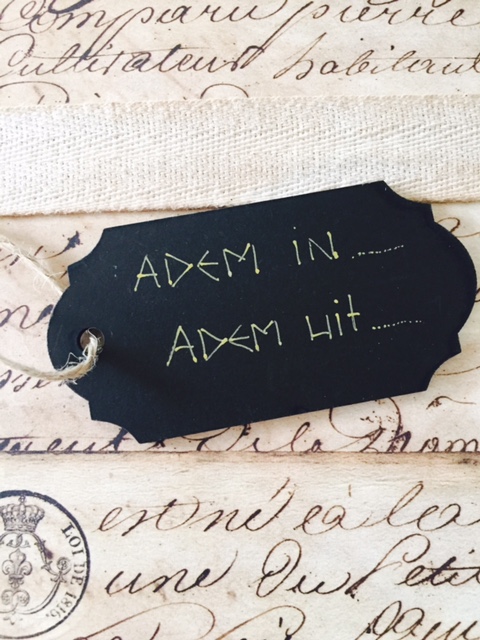 Comparu pierre
Cultivateur habitant
ADEM iN.......
ADEM uit........
est né à la
LOI DE 1816.
une du Petit